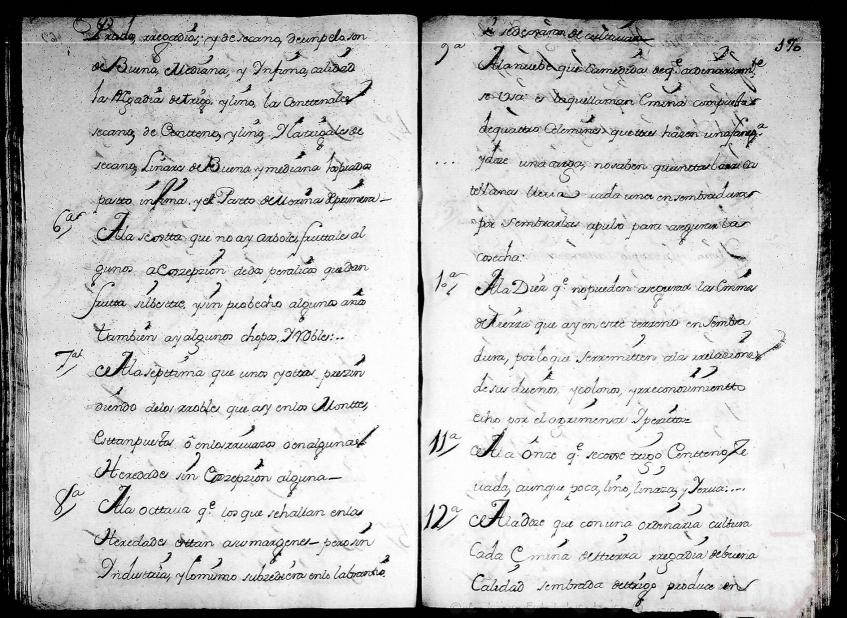 Prado, rregadios; y de secano, de un pelo son
de Buena, Mediana, y Infima, calidad
las Regadia de trigo, y lino, la Centenales
secano, de Centteno, y lino, Ytrigales de
secano, Linares de Buena, y mediana los prados
pasto infima, y el Pasto de Morina de primera _
6ª A la sextta que no ay arboles fruttales al
gunos a Cepzion de dos peralicos que dan
frutta silbestre, y sin probecho algunos años
tambien ay algunos chopos, Y Robles:..
7ª A la septtima que unos y otros prescin
diendo de los rrobles, que ay en los Montes,
esttan puestos ô en los rriuazos o en algunas
Heredades sin Cepzion alguna _
8ª A la octtaua q.e los que se hallan en las
Heredades esttan a sus margenes _ pero sin
Industria, y lo mismo subzediera en lo labrantio
370
se dexaran de cultiuar
9ª A la nuebe que la medida de q.e ordinariam.te
se Usa es la que llaman Emina compuesta
de quattro Celemines que tres hazen una fang.ª
y doze una carga, no saben quanttas baras Cas
tellanas lleua cada una en sembraduras
por sembrarlas a pulso para asegurar las
cosecha:
10ª A la Diez q.e no pueden asegurar las Eminas
de tierra que ay en este terreno en sembra
dura, por lo que se rremitten a la rrelazione
de sus dueños y colonos, y rreconozimientto
echo por el agrimensor Y peritos
11ª A la Onze q.e se coxe trigo Centteno, Ze
uada, aunque poca, lino, linaza, y Yerua:...
12ª A la doze que con una ordinaria cultura
Cada Emina de ttierra rregadia de buena
Calidad sembrada de trigo produce en